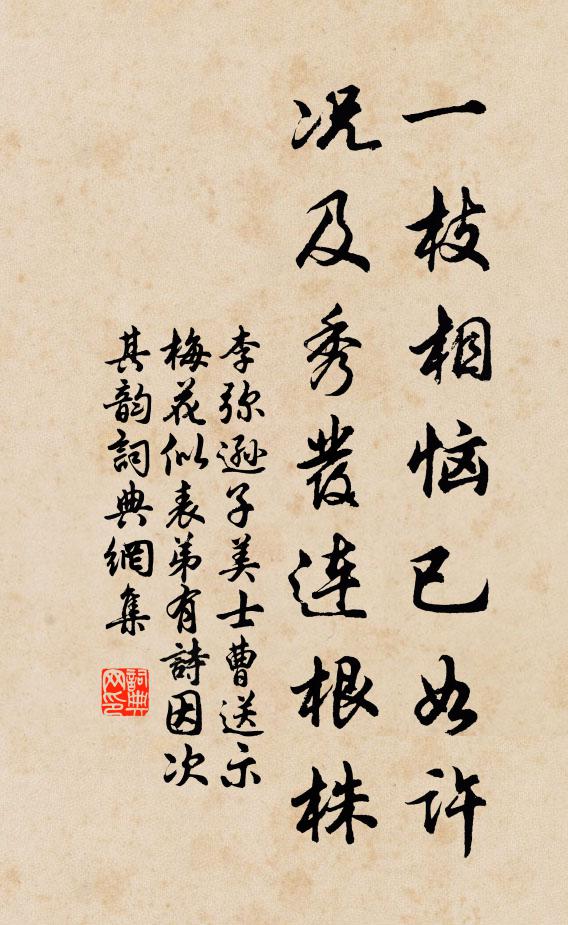 一枝相恼已如许
况及秀發连根株
李弥逊子美士曹送示
梅花似表弟有詩因次
其韵詞典網集
詞典網印